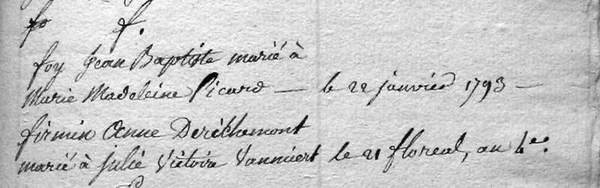 fo f.
foy Jean Baptiste marié à
Marie Madeleine Picard — le 22 janvier 1793 —
firmin Anne
marié à julie Victoire le 21 floreal, au 4e.